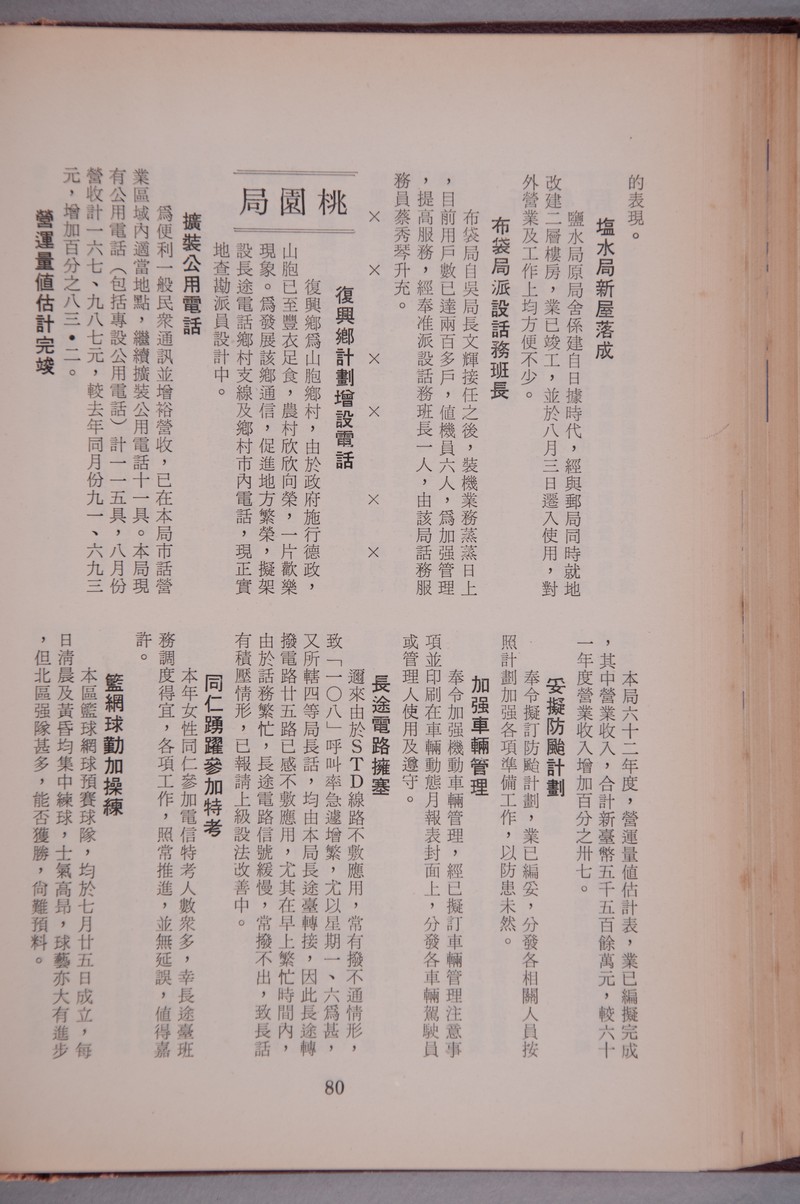 的表現。
塩水局新屋落成
鹽水局原局舍係建自日據時代，經與郵局同時就地
改建二層樓房，業已竣工，並於八月三日遷入使用，對
外營業及工作上均方便不少。
布袋局派設話務班長
布袋局自吳局長文輝接任之後，裝機業務蒸蒸日上
，目前用戶數已達兩百多戶，值機員六人，爲加强管理
，提高服務，經奉准派設話務班長一人，由該局話務服
務員蔡秀琴升充。
×　×　×　×　×　×
桃園局
復興鄉計劃增設電話
復興鄉爲山胞鄉村，由於政府施行德政，
山胞已至豐衣足食，農村欣欣向榮，一片歡樂
現象。爲發展該鄉通信，促進地方繁榮，擬架
設長途電話鄉村支線及鄉村市內電話，現正實
地查勘派員設計中。
擴裝公用電話
爲便利一般民衆通訊並增裕營收，已在本局市話營
業區域內適當地點，繼續擴裝公用電話十一具。本局現
有公用電話（包括專設公用電話）計一一五具，八月份
營收計一六七、九八七元，較去年同月份九一、六九三
元，增加百分之八三•二。
營運量值估計完竣
本局六十二年度，營運量値估計表，業已編擬完成
，其中營業收入，合計新臺幣五千五百餘萬元，較六十
一年度營業收入增加百分之卅七。
妥擬防颱計劃
奉令擬訂防颱計劃，業已編妥，分發各相關人員按
照計劃加强各項準備工作，以防患未然。
加强車輛管理
奉令加强機動車輛管理，經已擬訂車輛管理注意事
項並印刷在車輛動態月報表封面上，分發各車輛駕駛員
或管理人使用及遵守。
長途電路擁塞
邇來由於STD線路不敷應用，常有撥不通情形，
致「一〇八」呼叫率急遽增繁，尤以星期一、六爲甚，
又所轄四等局長話，均由本局長途臺轉接，因此長途轉
撥電路廿五路已感不敷應用，尤其在早上繁忙時間內，
由於話務繁忙，長途電路信號緩慢，常撥不出，致長話
有積壓情形，已報請上級設法改善中。
同仁踴躍參加特考
本年女性同仁參加電信特考人數衆多，幸長途臺班
務調度得宜，各項工作，照常推進，並無延誤，值得嘉
許。
籃網球勤加操練
本區籃球網球預賽球隊，均於七月廿五日成立，每
日淸晨及黃昏均集中練球，士氣高昂，球藝亦大有進步
，但北區强隊甚多，能否獲勝，尙難預料。
80